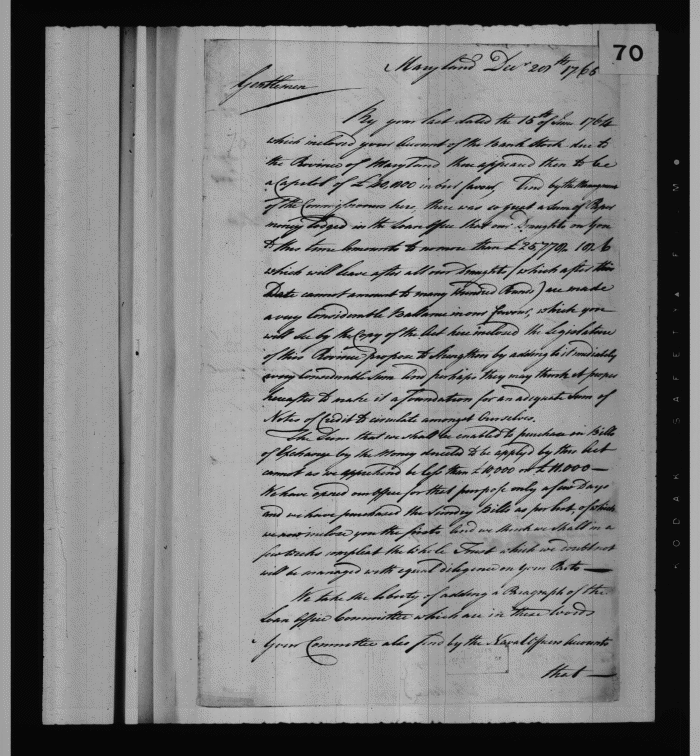 70
Maryland Decr 20th 1765
Gentlemen
By your last dated the 15th of June 1764
which inclosed your Account of the Bank Stock due to
the Province of Maryland there appeared then to be
a Capital of £ in our favour, And by the
of the Commissioners here, there was so great a Sum of Paper
money lodged in the Loan Office that our Draughts on you
to this time amounts to no more than £25,770. 10. 6
which will leave after all our Draughts (which after this
Date cannot amount to many Hundred Pounds) are made
a very Considerable Ballance in our favour, which you
will see by the Copy of the Act here inclosed the Legislature
of this Province propose to Strengthen by adding to it imediately
a very Considerable Sum and perhaps they may think it proper
hereafter to make it a foundation for an adequate Sum of
Notes of Credit to circulate amongst Ourselves.
The Sum that we shall be enabled to purchase in Bills
of Exchange by the Money directed to be applyed by this Act
cannot as we apprehend be less than £10,000 or £11,000 —
We have opened our Office for that purpose only a few Days
and we have purchased the Sundry Bills as per List, of which
we now inclose you the firsts and we think we shall in a
few weeks compleat the Whole Trust which we doubt not
will be managed with equal diligence on Your Parts —
We take the liberty of adding a Paragraph of the
Loan Office Committee which are in these Words
Your Committee also find by the Naval Officers Accounts
that —
KODAK SAFETY FILM